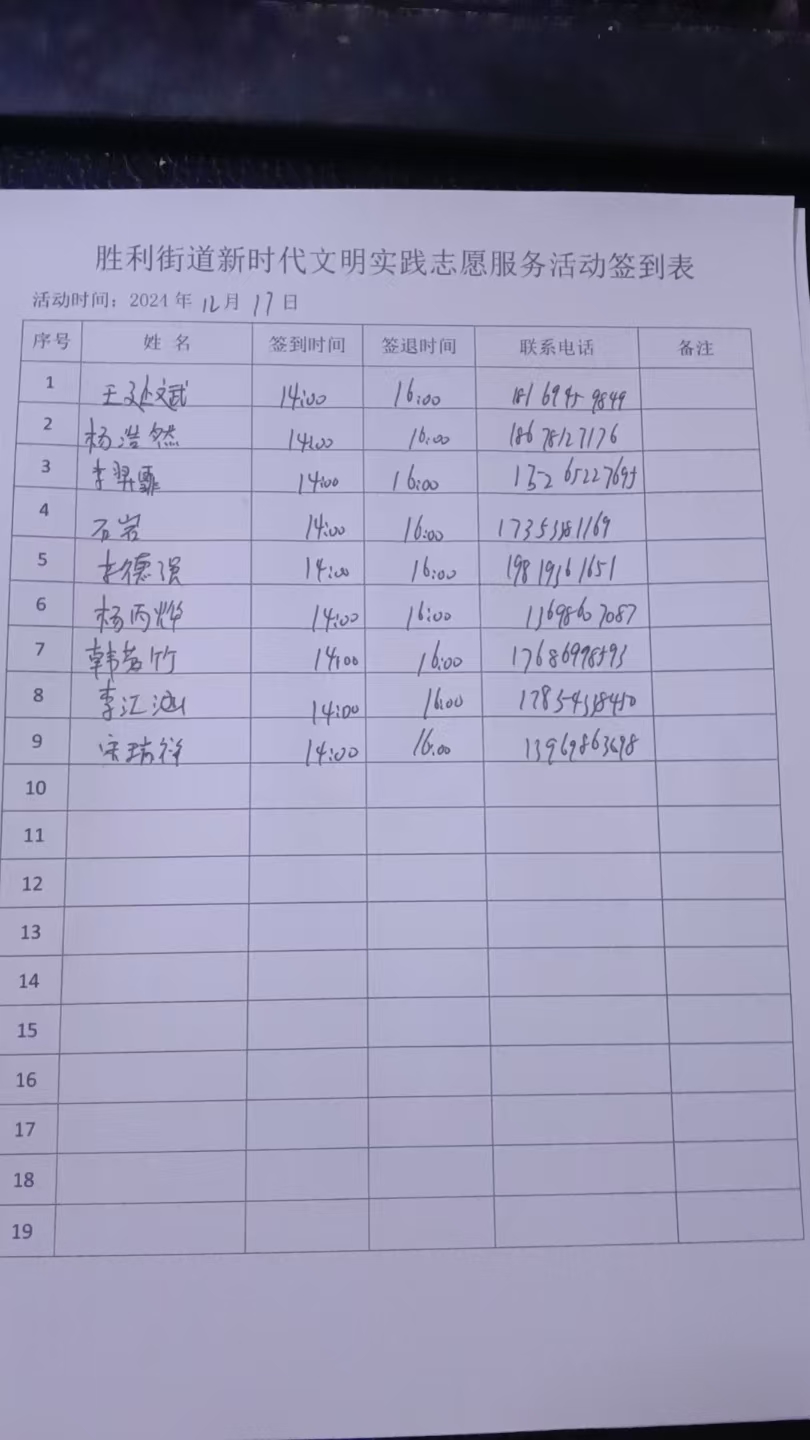 胜利街道新时代文明实践志愿服务活动签到表
活动时间：2024 年 12 月 17 日
序号 姓 名 签到时间 签退时间 联系电话 备注
1 王 斌 14:00 16:00
2 杨浩然 14:00 16:00 18678127176
3 李羿霏 14:00 16:00 13265227695
4 石岩 14:00 16:00
5 李德强 14:00 16:00 19819361651
6 杨丙烨 14:00 16:00 13698607087
7 韩 竹 14:00 16:00 17686998593
8 李江涵 14:00 16:00
9 宋瑞祥 14:00 16:00 13969863698
10
11
12
13
14
15
16
17
18
19